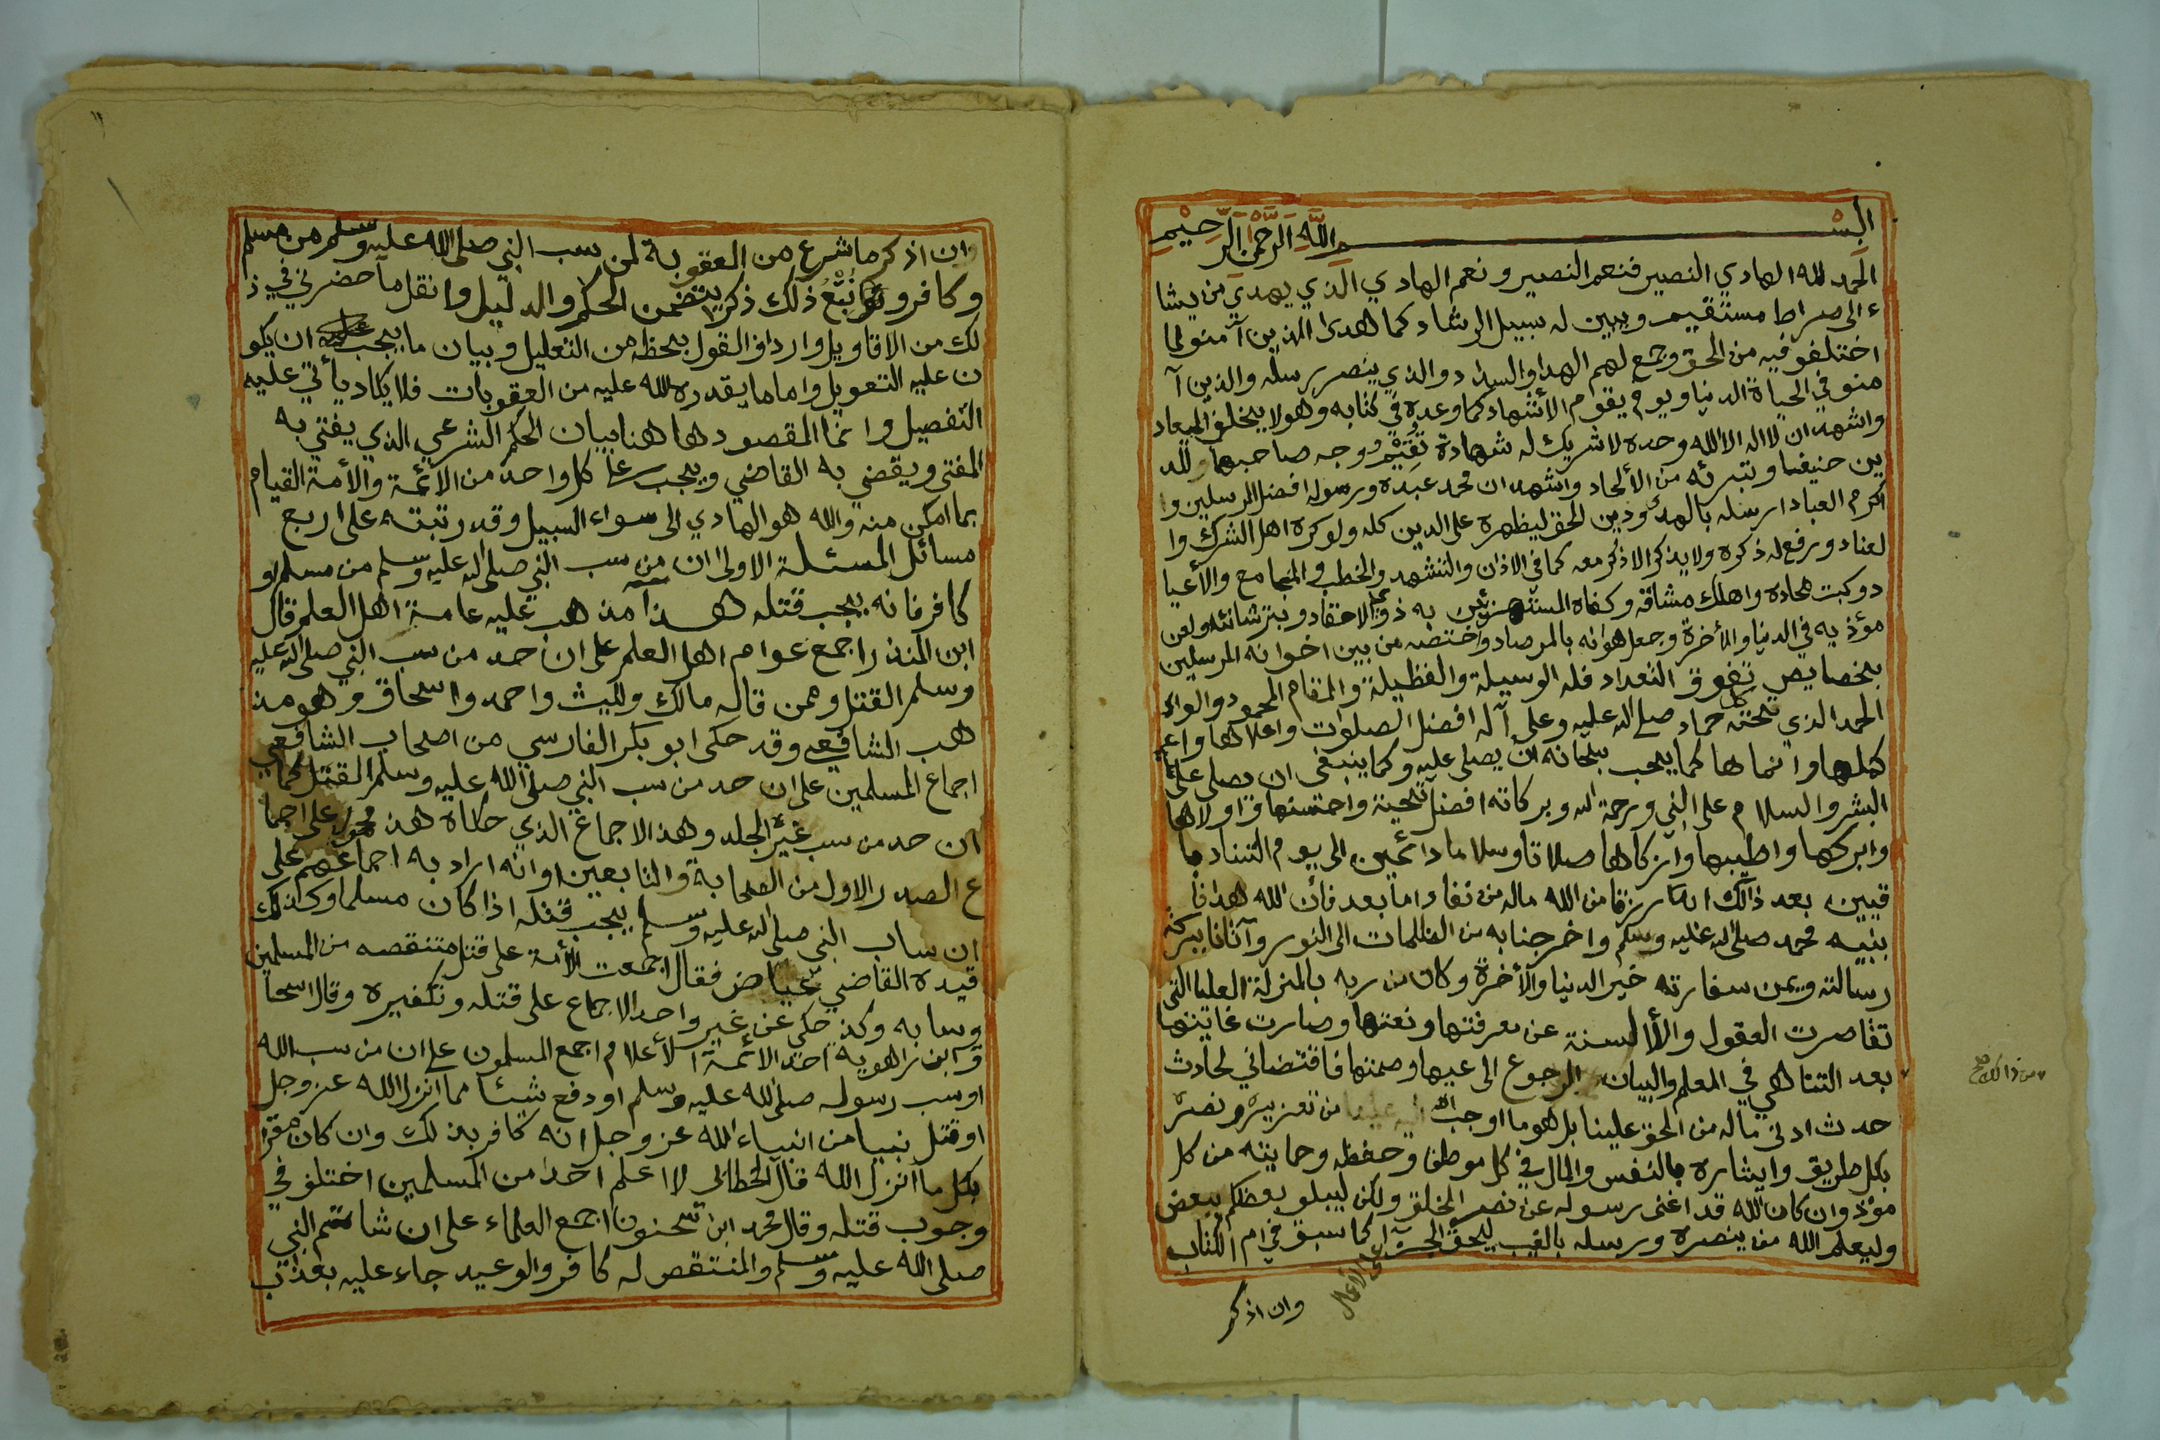 بسم الله الرحمن الرحيم
الحمد لله الهادي النصير فنعم النصير ونعم الهادي الذي يهدي من يشا
ء الى صراط مستقيم ويبين له سبيل الرشاد كما هدى الذين آمنو لما
اختلفو فيه من الحق وجمع لهم الهدا والسداد والذي ينصر رسله والذين آ
منو في الحياة الدنيا ويوم يقوم الأشهاد كما وعده في كتابه وهو لا يخلف الميعاد
واشهد ان لا اله الا الله وحده لا شريك له شهادة تقيم وجه صاحبها للد
ين حنيفا وتبرئه من الألحاد واشهد ان محمد عبده ورسوله افضل المرسلين وا
كرم العباد ارسله بالهدى ودين الحق ليظهره على الدين كله ولو كره اهل الشرك وا
لعناد ورفع له ذكره ولا يذكر الا ذكر معه كما في الاذان والتشهد والخطب والمجامع والأعيا
د وكبت محاده واهلك مشاقه وكفاه المستهزئين به ذوى الاحقاد وبتر شانئه ولعن
مؤذيه في الدنيا والأخرة وجعل هوانه بالمرصاد واختصه من بين اخوانه المرسلين
بخصايص تفوق التعداد فله الوسيلة والفظيلة والمقام المحمود والواء
الحمد الذي تحته كل حماد صلى الله عليه وعلى آله افضل الصلوات واعلاها وا
كملها وانماها كما يحب سبحانه ان يصلى عليه وكما ينبغى ان يصلى على
البشر والسلام على النبي ورحمة الله وبركاته افضل تحية واحسنها واولاها
وابركها واطيبها وازكاها صلاتا وسلاما دائمين الى يوم التناد با
قيين بعد ذالك ابدا رزقا من الله ماله من نفاد اما بعد فان الله هدانا
بنبيه محمد صلى الله عليه وسلم واخرجنا به من الظلمات الى النور وآتانا ببركة
رسالته ويمن سفارته خير الدنيا والأخرة وكان من ربه بالمنزلة العليا التي
تقاصرت العقول والألسنة عن معرفتها ونعتها وصارت غايتها
بعد التناهي في العلم والبيان الرجوع الى عيها وصمتها فاقتضاني لحادث
حدث ادنى ماله من الحق علينا بل هو ما اوجب الله علينا من تعزيره ونصره
بكل طريق وايثاره بالنفس والمال في كل موطن وحفظه وحمايته من كل
مؤذ وان كان الله قد اغنى رسوله عن نصر الخلق ولكن ليبلو بعضكم ببعض
وليعلم الله من ينصره ورسله بالغيب ليحق الجزاء على الأعمال كما سبق في ام الكتاب
وان اذكر
وان اذكر ما شرع من العقوبة لمن سب النبي صلى الله عليه وسلم من مسلم
وكافر وتوابع ذلك ذكرا يتضمن الحكم والدليل وانقل ما حضرني في ذ
لك من الاقاويل وارداف القول بحظه من التعليل وبيان ما يجب ان يكو
ن عليه التعويل واما ما يقدره الله عليه من العقوبات فلا يكاد يأتي عليه
التفصيل وانما المقصود هاهنا بيان الحكم الشرعي الذي يفتي به
المفتى ويقضي به القاضي ويجب على كل واحد من الائمة والأمة القيام
بما امكن منه والله هو الهادي الى سواء السبيل وقد رتبته على اربع
مسائل المسئلة الاولى ان من سب النبي صلى الله عليه وسلم من مسلم او
كافر فانه يجب قتله هذا مذهب عليه عامة اهل العلم قال
ابن المنذر اجمع عوام اهل العلم على ان حد من سب النبي صلى الله عليه
وسلم القتل وممن قاله مالك والليث واحمد واسحاق وهو مذ
هب الشافعي وقد حكى ابو بكر الفارسي من اصحاب الشافعي
اجماع المسلمين على ان حد من سب النبي صلى الله عليه وسلم القتل كما
ان حد من سب غيره الجلد وهذا الاجماع الذي حكاه هذا محمول على اجما
ع الصدر الاول من الصحابة والتابعين او انه اراد به اجماعهم على
ان ساب النبي صلى الله عليه وسلم يجب قتله اذا كان مسلما وكذلك
قيده القاضي عياض فقال اجمعت الأمة على قتل متنقصه من المسلمين
وسابه وكذ حكي عن غير واحد الاجماع على قتله وتكفيره وقال اسحا
ق ابن راهويه احد الائمة الأعلام اجمع المسلمون على ان من سب الله
او سب رسوله صلى الله عليه وسلم او دفع شئا مما انزل الله عز وجل
او قتل نبيا من انبياء الله عز وجل انه كافر بذلك وان كان مقرا
بكل ما انزل الله قال الخطابى لا اعلم احدا من المسلمين اختلف في
وجوب قتله وقال محمد ابن سحنون اجمع العلماء على ان شاتم النبي
صلى الله عليه وسلم والمنتقص له كافر والوعيد جاء عليه بعذاب